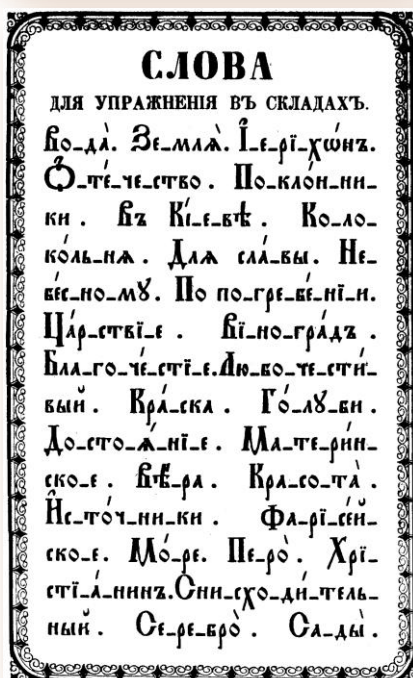 СЛОВА
ДЛЯ УПРАЖНЕНІЯ ВЪ СКЛАДАХЪ.
Во-да̀. Зе-млѧ̀. І҆-е-рї-хѡ́нъ.
Ѻ҆-те́-че-ство. По-кло́н-ни-
ки. Въ Кі́-е-вѣ. Ко-ло-
ко́ль-нѧ. Для сла́-вы. Не-
бе́с-но-мꙋ. По по-гре-бе́-нї-и.
Ца́р-ствї-е. Ві-но-гра́дъ.
Бла-го-че́-стї-е. Лю-бо-че-сти́-
вый. Кра́-ска. Го́-лꙋ-би.
До-сто-ѧ́-нї-е. Ма-те-ри́н-
ско-е. Вѣ́-ра. Кра-со-та̀.
И҆с-то́ч-ни-ки. Фа-рї-се́й-
ско-е. Мо́-ре. Пе-ро̀. Хрї-
стї-а́-нинъ. Сни-схо-ди́-тель-
ный. Се-ре-бро̀. Са-ды̀.